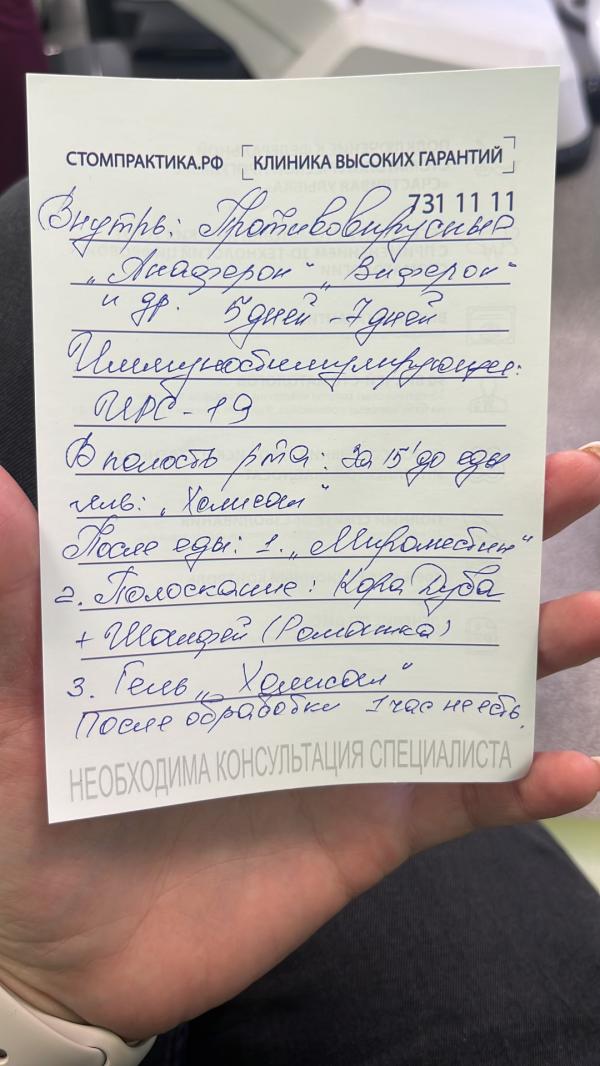 СТОМПРАКТИКА.РФ КЛИНИКА ВЫСОКИХ ГАРАНТИЙ
731 11 11
Внутрь: Противовирусные
"Анаферон" "Виферон"
и др. 5дней - 7дней
Иммуностимулирующее:
ИРС - 19
В полость рта: За 15' до еды
гель: "Холисал"
После еды: 1. "Мирамистин"
2. Полоскание: Кора Дуба
+ Шалфей (Ромашка)
3. Гель "Холисал"
После обработки 1 час не есть.
НЕОБХОДИМА КОНСУЛЬТАЦИЯ СПЕЦИАЛИСТА